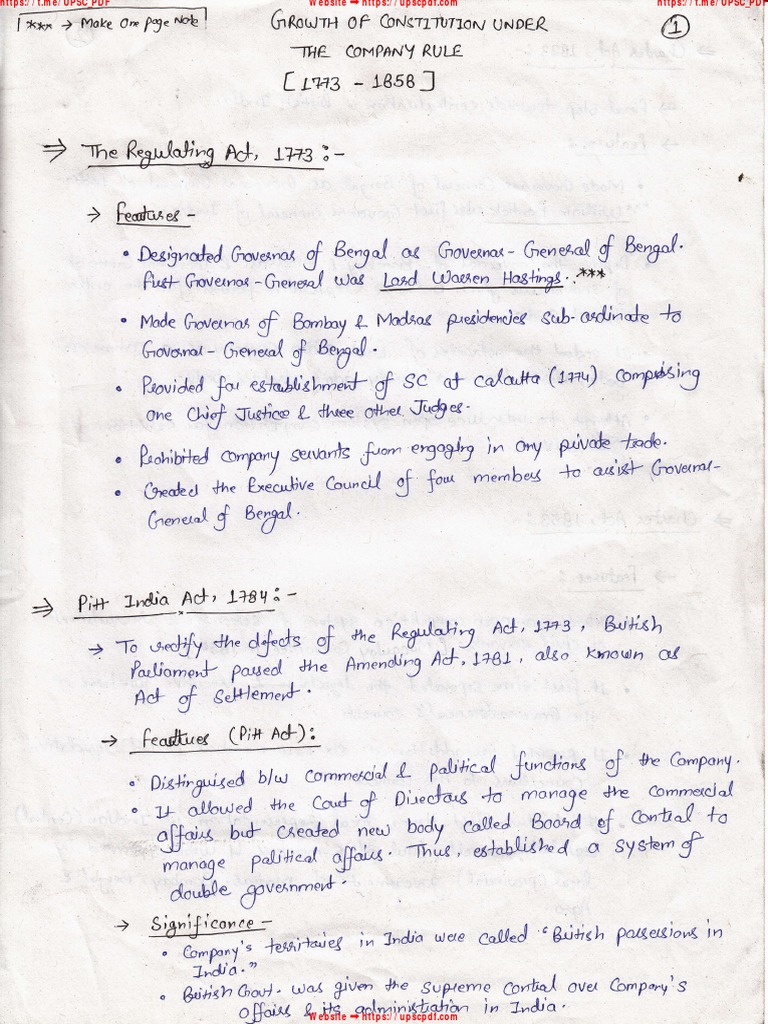 https://t.me/UPSC_PDF Website ➡ https://upscpdf.com https://t.me/UPSC_PDF
*** → Make One page Note
GROWTH OF CONSTITUTION UNDER
THE COMPANY RULE
[1773 - 1858]
1
⇒ The Regulating Act, 1773 :-
→ Features -
• Designated Governor of Bengal as Governor-General of Bengal.
First Governor-General was Lord Warren Hastings. ***
• Made Governor of Bombay & Madras presidencies sub-ordinate to
Governor-General of Bengal.
• Provided for establishment of SC at Calcutta (1774) comprising
one Chief Justice & three other Judges.
• Prohibited company servants from engaging in any private trade.
• Created the Executive Council of four members to assist Governor-
General of Bengal.
⇒ Pitt India Act, 1784 :-
→ To rectify the defects of the Regulating Act, 1773, British
Parliament passed the Amending Act, 1781, also known as
Act of Settlement.
→ Features (Pitt Act):
• Distinguised b/w commercial & political functions of the Company.
• It allowed the Court of Directors to manage the commercial
affairs but created new body called Board of Control to
manage political affairs. Thus, established a system of
double government.
→ Significance -
• Company's territories in India were called "British possessions in
India."
• British Govt. was given the supreme control over Company's
affairs & its administration in India.
Website ➡ https://upscpdf.com